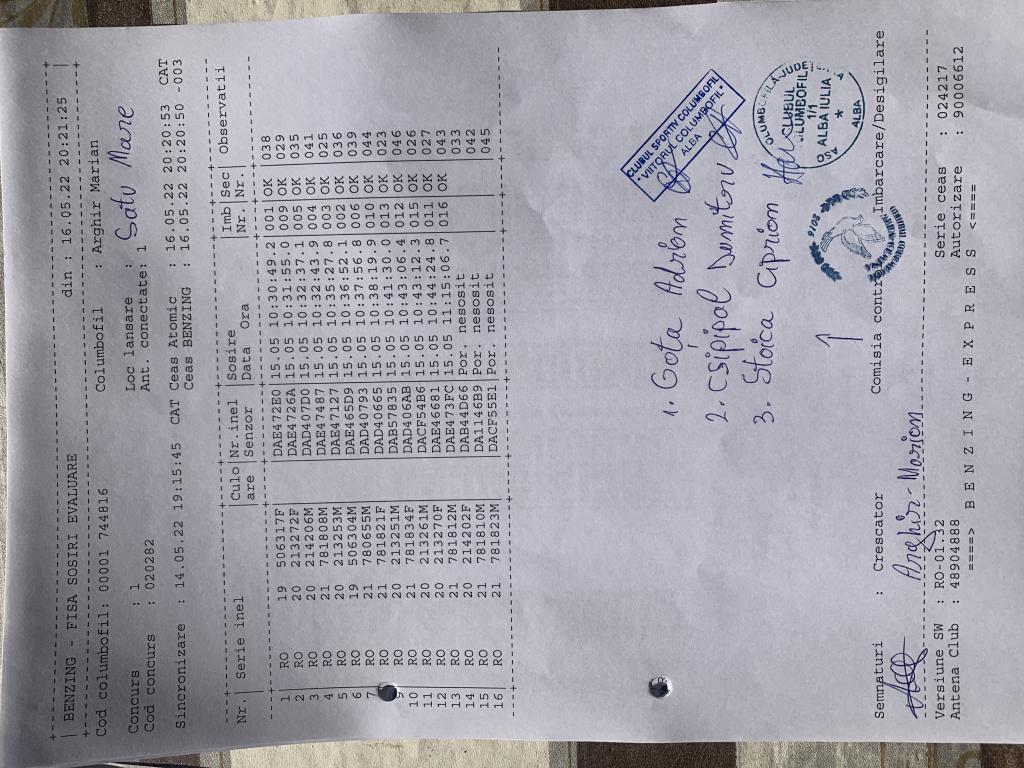 BENZING - FISA SOSIRI EVALUARE din : 16.05.22 20:21:25
Cod columbofil: 00001 744816 Columbofil : Arghir Marian
Concurs : 1 Loc lansare : Satu Mare
Cod concurs : 020282 Ant. conectate: 1
Sincronizare : 14.05.22 19:15:45 CAT Ceas Atomic : 16.05.22 20:20:53 CAT
Ceas BENZING : 16.05.22 20:20:50 -003
Nr. | Serie inel |Culo|Nr.inel |Sosire |Imb|Sec| Observatii
|are |Senzor |Data Ora |Nr.|Nr.|
1 | RO 19 506317F | |DAE472E0|15.05 10:30:49.2|001|OK |038
2 | RO 20 213272F | |DAE4726A|15.05 10:31:55.0|009|OK |029
3 | RO 20 214206M | |DAD407D0|15.05 10:32:37.1|005|OK |035
4 | RO 21 781808M | |DAE47487|15.05 10:32:43.9|004|OK |041
5 | RO 20 213253M | |DAE47127|15.05 10:35:27.8|003|OK |025
6 | RO 19 506304M | |DAE465D9|15.05 10:36:52.1|002|OK |036
7 | RO 21 780655M | |DAD40793|15.05 10:37:56.8|006|OK |039
| RO 21 781821F | |DAD40665|15.05 10:38:19.9|010|OK |044
9 | RO 20 213251M | |DAB57835|15.05 10:41:30.0|013|OK |023
10 | RO 21 781834F | |DAD406AB|15.05 10:43:06.4|012|OK |046
11 | RO 20 213261M | |DACF54B6|15.05 10:43:12.3|015|OK |026
12 | RO 20 213270F | |DAE46681|15.05 10:44:24.8|011|OK |027
13 | RO 21 781812M | |DAE473FC|15.05 11:15:06.7|016|OK |043
14 | RO 20 214202F | |DAB44D66|Por. nesosit | | |033
15 | RO 21 781810M | |DA1146B9|Por. nesosit | | |042
16 | RO 21 781823M | |DACF55E1|Por. nesosit | | |045
CLUBUL SPORTIV COLUMBOFIL
"VIITORUL COLUMBOFIL"
ALBA
1. Goța Adrian
2. Csipipal Dumitru
3. Stoica Ciprian
COLUMBOFILA JUDE
CLUBUL
COLUMBOFIL
1/1
ALBA IULIA
ASO
ALBA
2016
Semnaturi : Crescator Comisia control Imbarcare/Desigilare
Arghir Marian
Versiune SW : RO-01.32 Serie ceas : 024217
Antena Club : 48904888 Autorizare : 90006612
====> B E N Z I N G - E X P R E S S <====